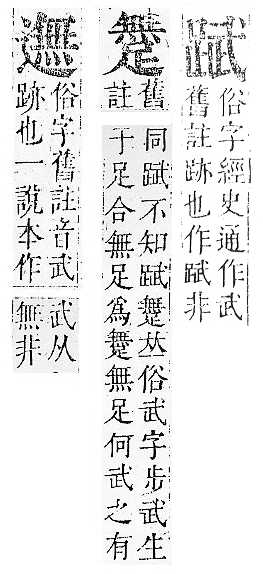 䟼
俗字經史通作武
舊註跡也作䟼非
舊
註
同䟼不知䟼𠀤俗武字步武生
于足合無足爲無足何武之有
俗字舊註音武
跡也一說本作
武从
無非